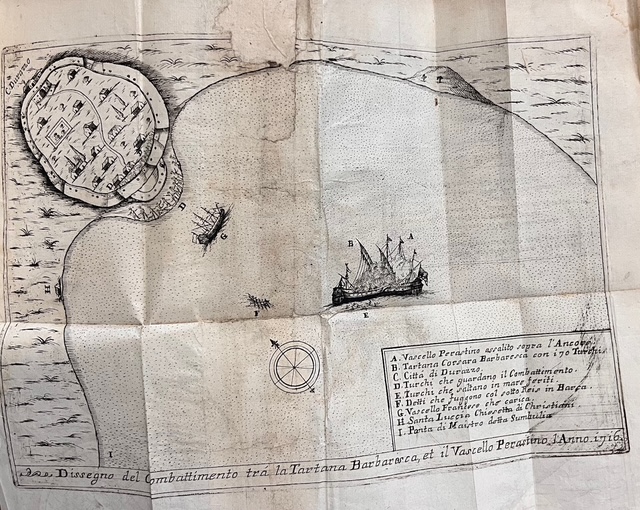 C. Durazzo
T
D
D
G
B
A
H
F
E
I
A. Vascello Perastino assalito sopra l'Ancore.
B. Tartana Corsara Barbaresca con 170 Turchi.
C. Città di Durazzo.
D. Turchi che guardano il Combattimento.
E. Turchi che saltano in mare feriti.
F. Detti che fuggono col sotto Reis in Barca.
G. Vascello Franzese che carica.
H. Santa Luccia Chiesetta di Christiani.
I. Ponta di Maistro detta
Dissegno del Combattimento trà la Tartana Barbaresca, et il Vascello Perastino l'Anno. 1716.